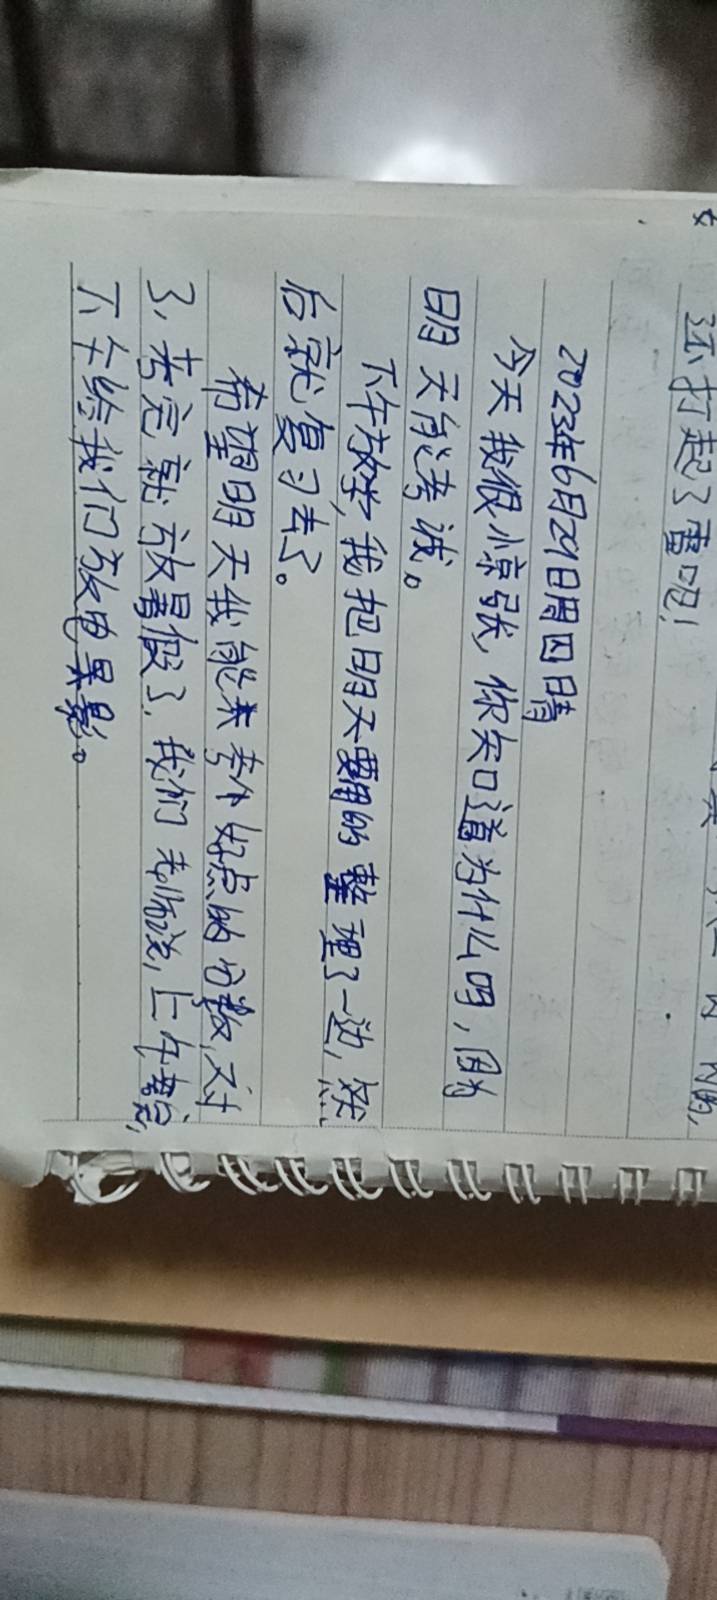 还打起了雷吧！
2023年6月29日周四晴
今天我很小京张，你知道为什么明，因为
明天能考诚。
下午放学，我把明天要用的整理了一边，然
后就复习去了。
希望明天我能来考个好点的分数，对
了，考完就放暑假了，我们老师说，上午考完，
下午给我们放电影。